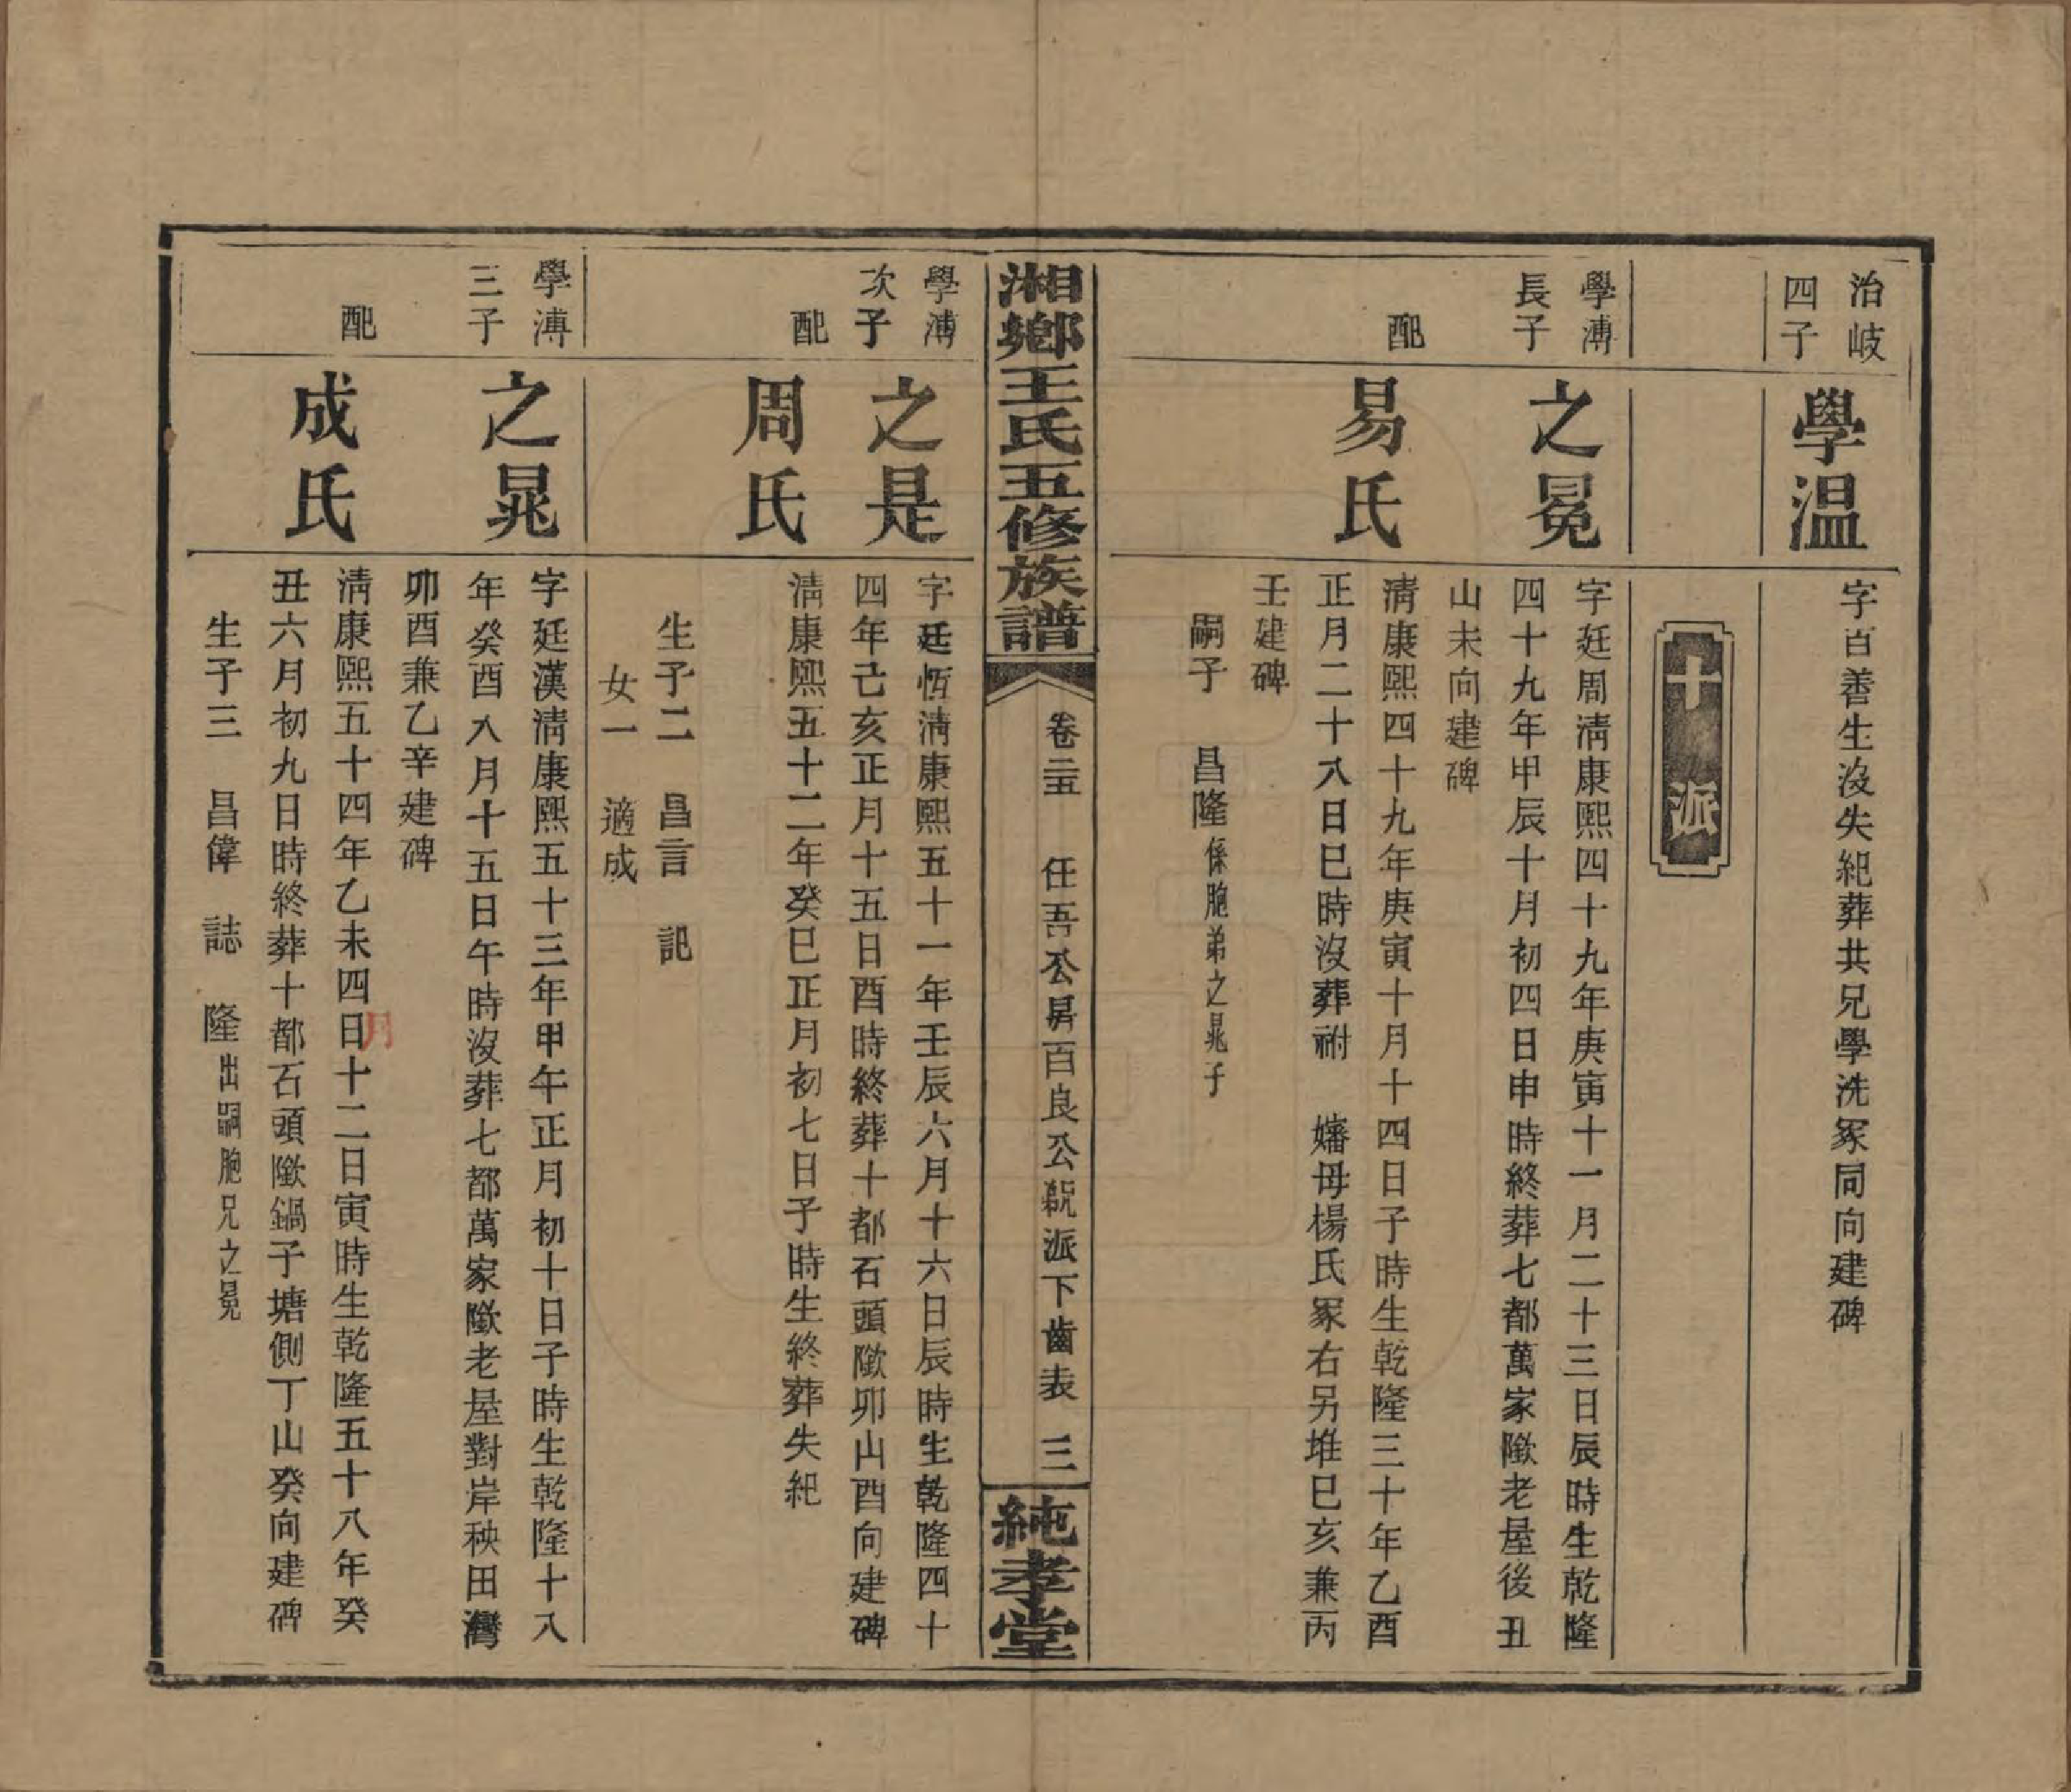 治岐
四子
學温
字百善生沒失紀葬共兄學洗冢同向建碑
十派
學溥
長子
之冕
字廷周淸康熙四十九年庚寅十一月二十三日辰時生乾隆
四十九年甲辰十月初四日申時終葬七都萬家隞老屋後丑
山未向建碑
配
易氏
淸康熙四十九年庚寅十月十四日子時生乾隆三十年乙酉
正月二十八日巳時沒葬祔 嬸母楊氏冢右另堆巳亥兼丙
壬建碑
嗣子 昌隆係胞弟之晁子
湘鄉王氏五修族譜
卷二五 任吾公昇百良公派下齒表 三
純孝堂
學溥
次子
之是
字廷恆淸康熙五十一年壬辰六月十六日辰時生乾隆四十
四年己亥正月十五日酉時終葬十都石頭隞卯山酉向建碑
配
周氏
淸康熙五十二年癸巳正月初七日子時生終葬失紀
生子二 昌言 記
女一 適成
學溥
三子
之晁
字廷漢淸康熙五十三年甲午正月初十日子時生乾隆十八
年癸酉八月十五日午時沒葬七都萬家隞老屋對岸秧田灣
卯酉兼乙辛建碑
配
成氏
淸康熙五十四年乙未四日十二日寅時生乾隆五十八年癸
月
丑六月初九日時終葬十都石頭隞鍋子塘側丁山癸向建碑
生子三 昌偉 誌 隆出嗣胞兄之冕